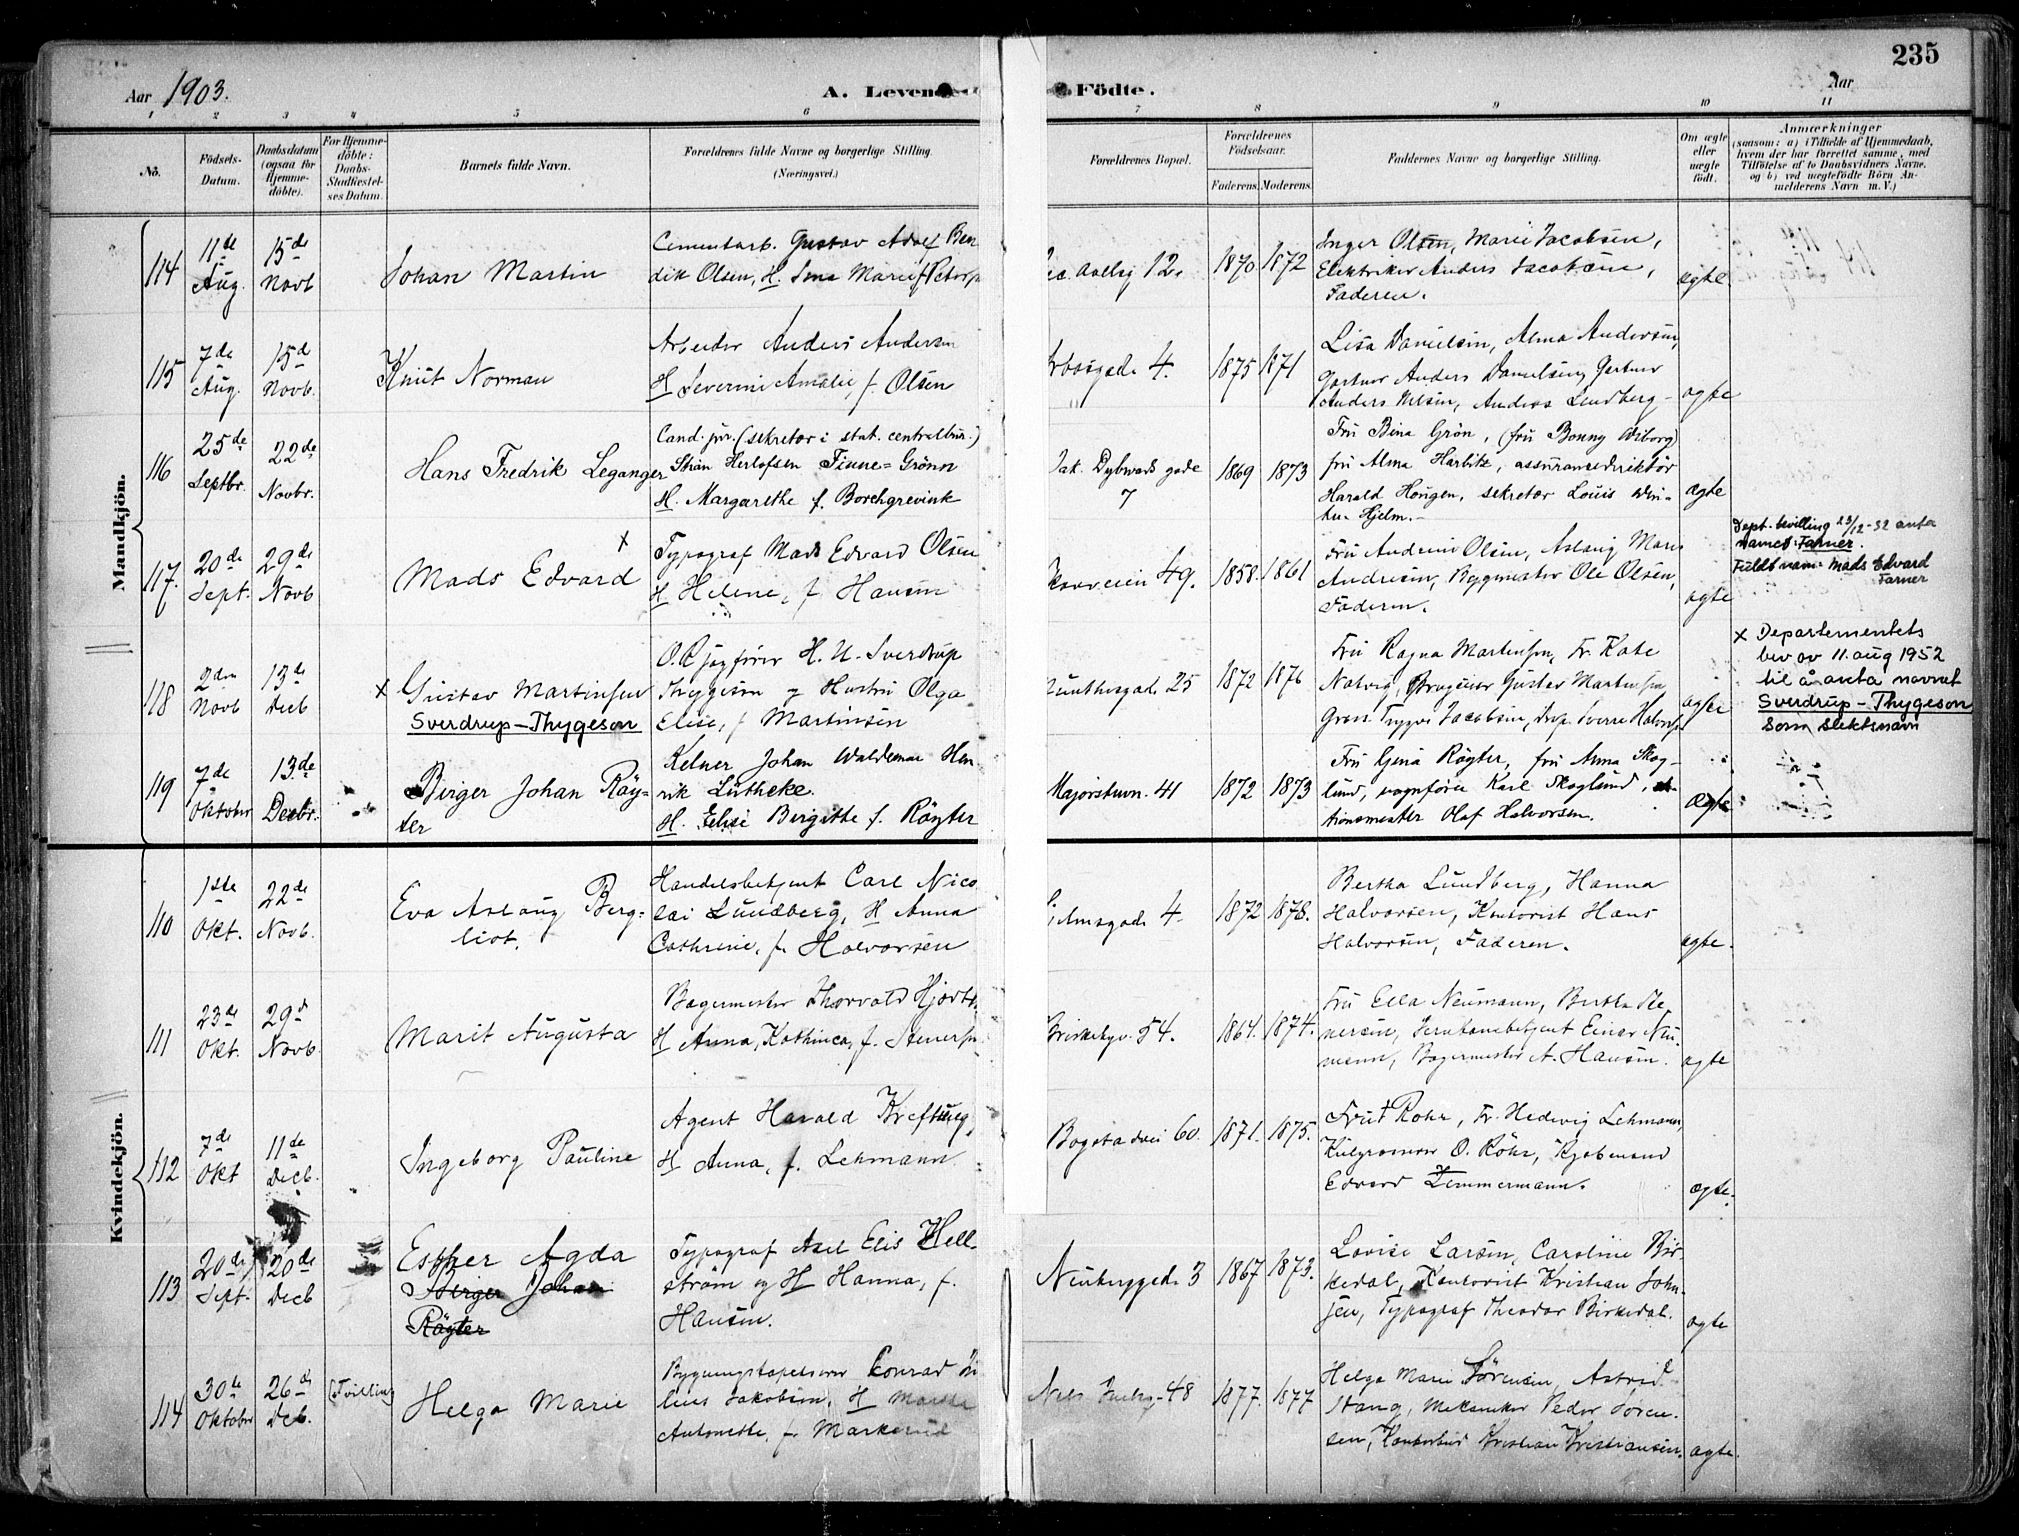 235
Aar 1903.
A. Levende Födte.
Aar
1 2 3 4 5 6 7 8 9 10 11
No.
Födsels-Datum.
Daabsdatum (ogsaa for Hjemme-döbte).
For Hjemme-döbte: Daabs-Stadfæstel-ses Datum.
Barnets fulde Navn.
Forældrenes fulde Navne og borgerlige Stilling.
(Næringsvei.)
Forældrenes Bopæl.
Forældrenes Födselsaar.
Faderens. Moderens.
Faddernes Navne og borgerlige Stilling.
Om ægte eller uægte födt.
Anmærkninger
(saasom: a) i Tilfælde af Hjemmedaab, hvem der har forrettet samme, med Tilföielse af to Daabsvidners Navne. og b) ved uægtefödte Börn An-melderens Navn m. V.)
Mandkjön.
114
11te Aug.
15de Novb
Johan Martin
Cementarb. Gustav Adolf Ben
dik Olsen, H. Marie f.
12.
1870 1872
Inger Olsen, Marie Jacobsen,
Elektriker Anders Jacobsen,
Faderen.
ægte.
115
7de Aug.
15de Novb.
Knut Norman
Arbeider Anders Andersen
H Severine Amalie, f. Olsen
4.
1875 1871
Lisa Danielsen, Alma Andersen,
Gartner Anders Danielsen, Gartner
Anders Nilsen, Anders Lundberg
ægte
116
25de Septbr.
22de Novbr.
Hans Fredrik Leganger
Cand. jur. (sekretær i stat. centralbur.)
Stian Herlofsen Finne-Grønn
H. Margarethe f. Borchgrevink
Jak. Dybwads gade
7
1869 1873
Fru Bina Grön, (fru Bonny Wiborg)
fru Alma Harbitz, assurancedirektör
Harald Hougen, sekretær Louis Win-
Hjelm.
ægte
117.
20de Sept.
29de Novb
Mads Edvard x
Typograf Mads Edvard Olsen
H Helene, f. Hansen
49.
1858. 1861
Fru Andrine Olsen, Aslaug Marie
Andresen, Bygmester Ole Olsen,
Faderen.
ægte
Dept. bevilling 23/12-32 anta
navnet Farner.
Fuldt navn: Mads Edvard
Farner
118
2den Novb
13de Decb
x Gustav Martinsen
Sverdrup-Thygeson
O.R. sagförer H. U. Sverdrup
Thygeson og Hustru Olga
Elise, f. Martinsen
25
1872 1876
Fru Ragna Martinsen, Fr. Kate
Natvig, Gustav Martinsen
Trygve Jacobsen, Sverre
ægte
x Departementets
bev av 11. aug 1952
til å anta navnet
Sverdrup-Thygeson
som slektsnavn
119
7de Oktober
13.de Decbr.
Birger Johan Röy-
ter
Kelner Johan Waldemar Hen-
rik Lütheke.
H. Elise Birgitte f. Röyter
Majorstuvn. 41
1872 1873
Fru Gina Röyter, fru Anna Skog-
lund, vognförer Karl Skoglund,
tionsmester Olaf Halvorsen.
Ægte
Kvindekjön.
110
1ste Okt.
22de Novb.
Eva Aslaug Berg-
liot.
Handelsbetjent Carl Nico
lai Lundberg, H Anna
Cathrine, f. Halvorsen
4.
1872 1878.
Bertha Lundberg, Hanna
Halvorsen, Kontorist Hans
Halvorsen, Faderen.
ægte.
111
23de Okt.
29d Novb
Marit Augusta
Bagermester Thorvald
H Anna Kathinca, f.
Briskebyv. 54.
1864. 1874.
Fru Ella Neumann, Bertha Ste
nersen, Einar Neu-
mann, Bagermester A. Hansen.
ægte
112
7de Okt
11de Decb.
Ingeborg Pauline
Agent Harald Krefting,
H Anna, f. Lehmann
Bogstadvei 60.
1871. 1875.
Rohr, Fr. Hedevig Lehmann,
O. Röhr, Kjöbmand
Edvard Zimmermann.
ægte.
113
20de Sept.
20de Decb
Esther Agda
Birger Johan
Röyter
Typograf Axel Elis Hell-
ström og H Hanna, f.
Hansen.
Neuberggade 3
1867 1873.
Lovise Larsen, Caroline Bir-
kedal, Kontorist Kristian John-
sen, Typograf Theodor Birkedal.
ægte
114
30te Oktober
26de Deb.
(Tvilling
Helga Marie
Conrad
Jakobsen, H
Antonette, f.
48
1877. 1877
Helga Marie Sörensen, Astrid
Stang, Mekaniker Peder Sören-
sen, Kristian Kristiansen.
ægte.